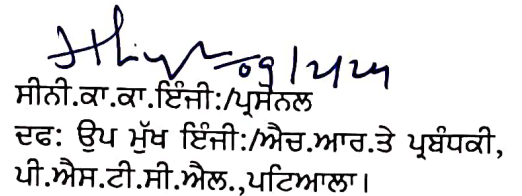 09/4/24
ਸੀਨੀ.ਕਾ.ਕਾ.ਇੰਜੀ:/ਪ੍ਰਸੋਨਲ
ਦਫ: ਉਪ ਮੁੱਖ ਇੰਜੀ:/ਐਚ.ਆਰ.ਤੇ ਪ੍ਰਬੰਧਕੀ,
ਪੀ.ਐਸ.ਟੀ.ਸੀ.ਐਲ.,ਪਟਿਆਲਾ।